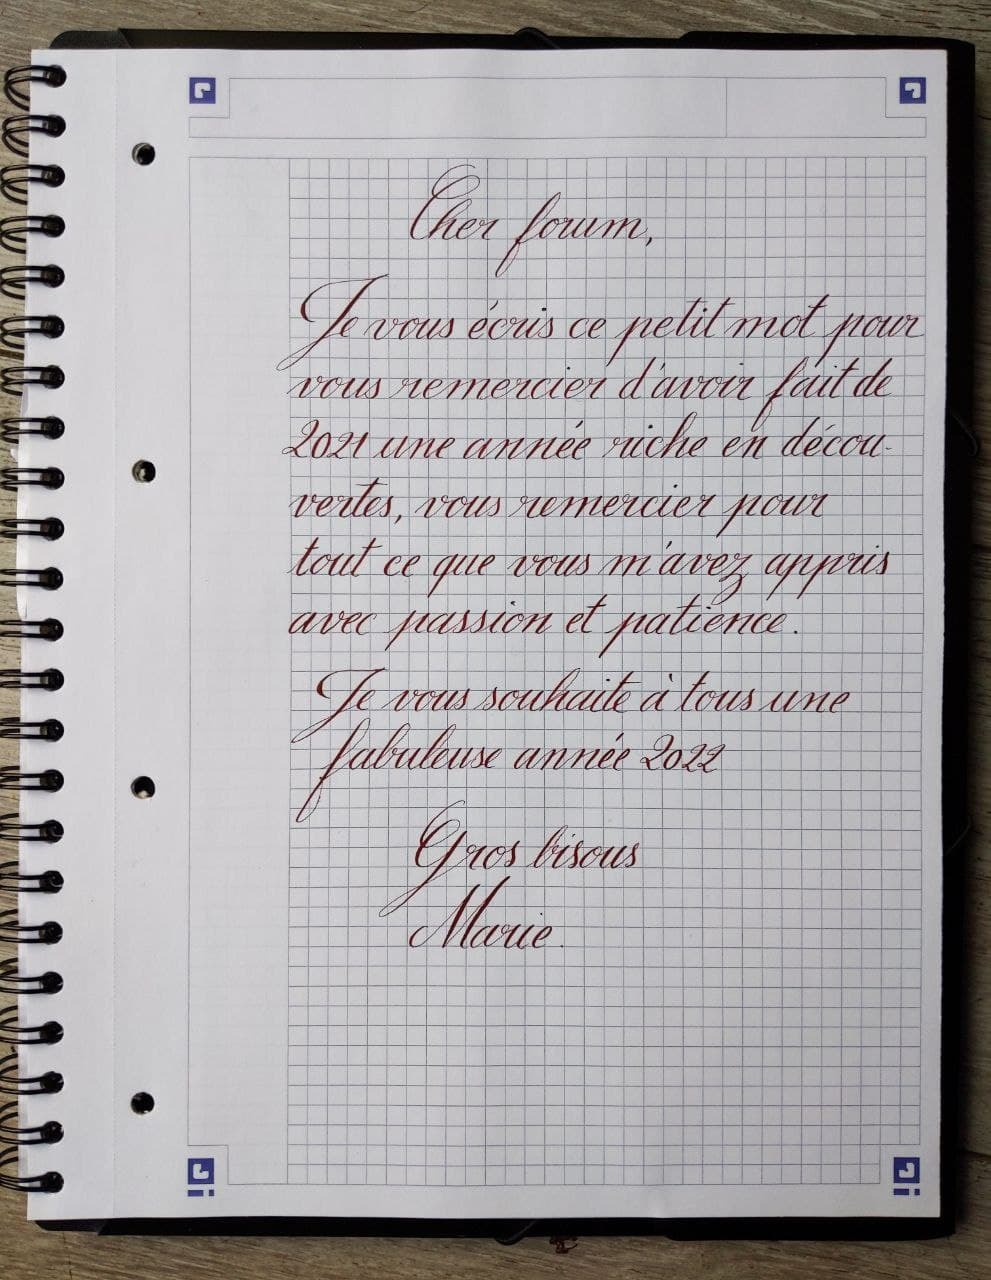 Cher forum,
Je vous écris ce petit mot pour
vous remercier d'avoir fait de
2021 une année riche en décou-
vertes, vous remercier pour
tout ce que vous m'avez appris
avec passion et patience.
Je vous souhaite à tous une
fabuleuse année 2022
Gros bisous
Marie.